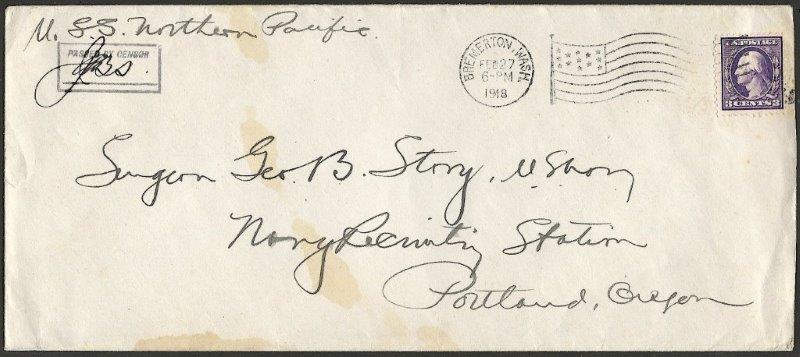 U.S.S. Northern Pacific.
PASSED BY CENSOR
BREMERTON, WASH.
FEB 27
6-PM
1918
U.S. POSTAGE
3 CENTS 3
Surgeon Geo. B. Story, U.S. Navy
Navy Recruiting Station
Portland, Oregon